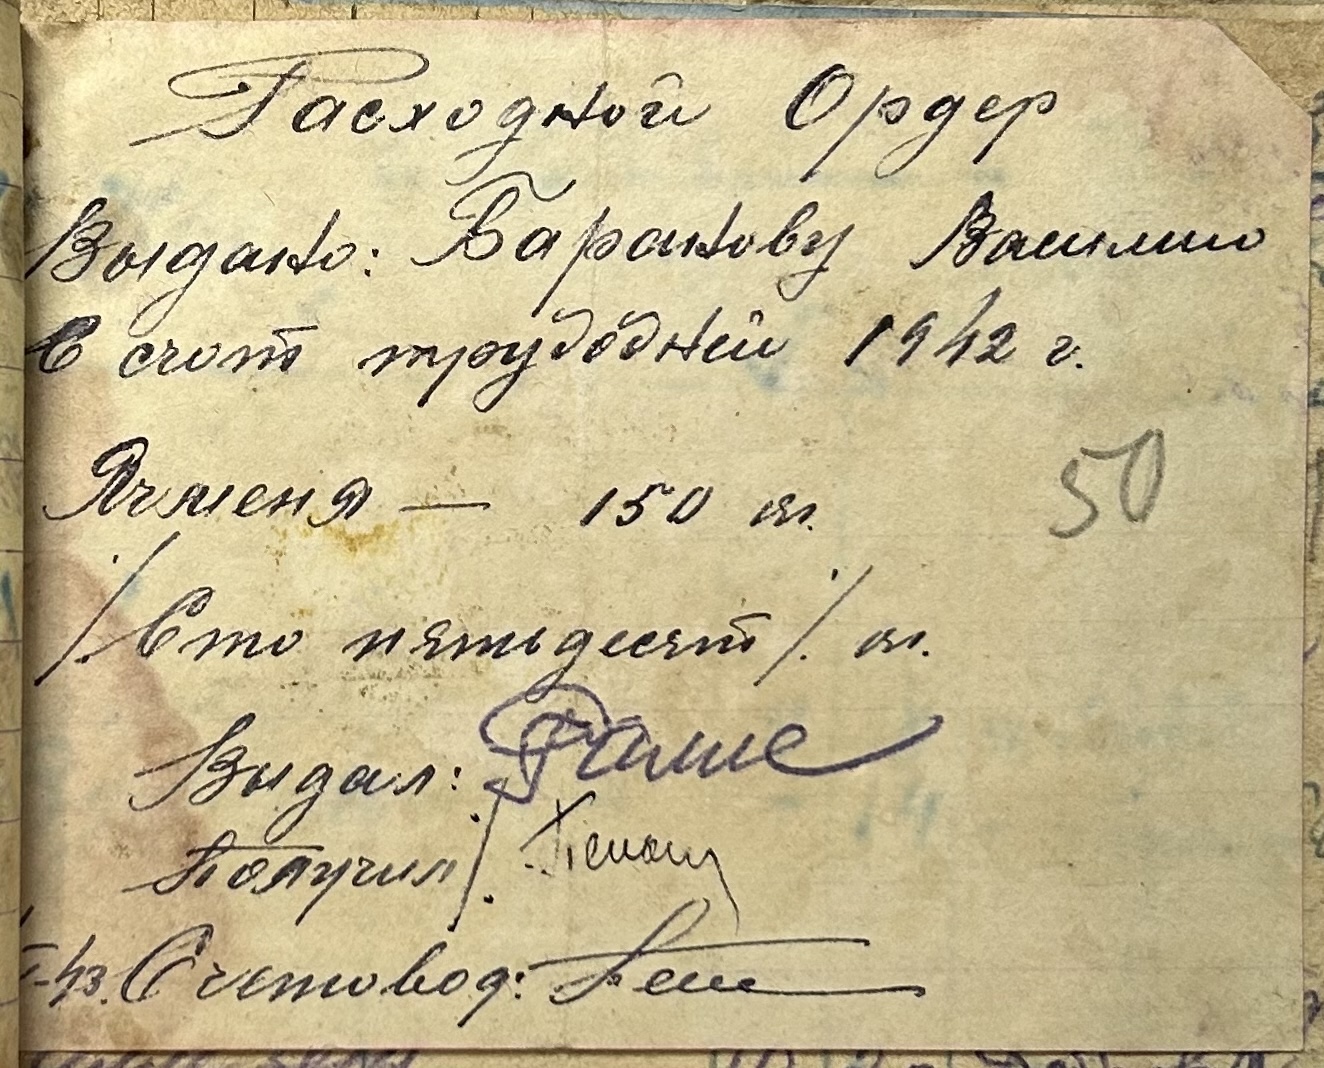 Расходной Ордер
Выдано: Баранову Василию
в счот трудодней 1942 г.
Ячменя — 150 кг.
50
/Сто пятьдесят/. кг.
Выдал:
Получил/:
-43. Счетовод: